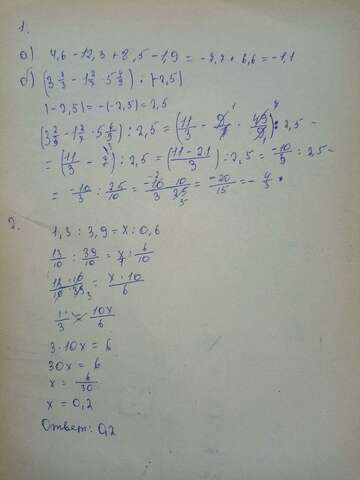 1.
а) 4,6 - 12,3 + 8,5 - 1,9 = -7,7 + 6,6 = -1,1
б) (3 2/3 - 1 2/7 · 5 4/9) : |-2,5|
|-2,5| = -(-2,5) = 2,5
(3 2/3 - 1 2/7 · 5 4/9) : 2,5 = (11/3 - 9/7 · 49/9) : 2,5 =
= (11/3 - 7) : 2,5 = (11 - 21/3) : 2,5 = -10/3 : 2,5 =
= -10/3 : 25/10 = -10/3 · 10/25 = -20/15 = -4/3
2.
1,3 : 3,9 = x : 0,6
13/10 : 39/10 = x : 6/10
13 · 10/10 · 39 = x · 10/6
1/3 = 10x/6
3 · 10x = 6
30x = 6
x = 6/30
x = 0,2
Ответ: 0,2